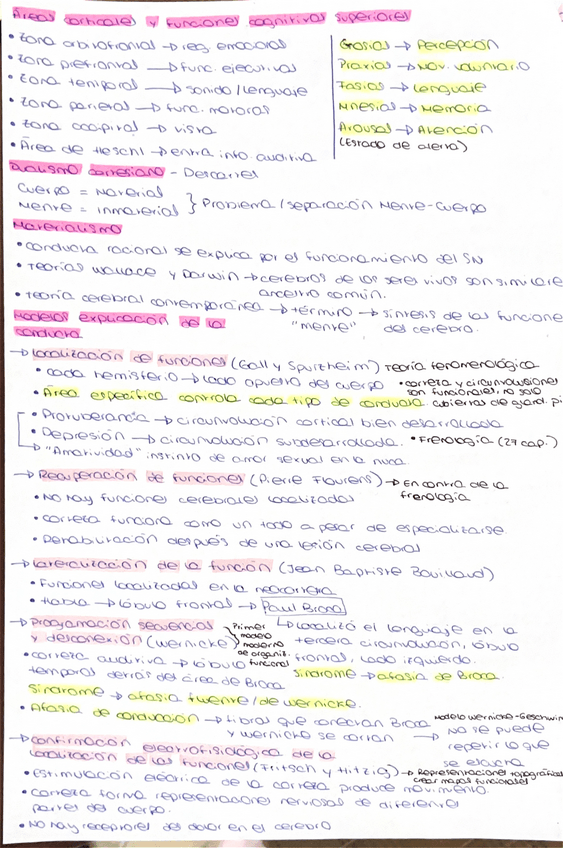 Áreas corticales y funciones cognitivas superiores
• Zona orbitofrontal → reg. emocional
• Zona prefrontal → func. ejecutivas
• Zona temporal → sonido/lenguaje
• Zona parietal → func. motoras
• Zona occipital → vista
• Área de Heschl → entra info auditiva
Gnosias → Percepción
Praxias → Mov. voluntario
Fasias → Lenguaje
Mnesias → Memoria
Arousal → Atención
(Estado de alerta)
Dualismo cartesiano - Descartes
Cuerpo = Material
Mente = Inmaterial } Problema/separación Mente-cuerpo
Materialismo
• Conducta racional se explica por el funcionamiento del SN
• Teorías Wallace y Darwin → cerebros de los seres vivos son similare
ancestro común.
• Teoría cerebral contemporánea → término → síntesis de las funcione
"mente" del cerebro.
Modelos explicación de la
conducta
→ Localización de funciones (Gall y Spurzheim) Teoría fenomenológica
• Cada hemisferio → lado opuesto del cuerpo
• corteza y circunvoluciones
son funcionales, no solo
cubiertas de gland. pi
• Área específica controla cada tipo de conducta.
• Protuberancia → circunvolución cortical bien desarrollada
• Depresión → circunvolución subdesarrollada. • Frenología (27 cap.)
→ "Amatividad" instinto de amor sexual en la nuca.
→ Recuperación de funciones (Pierre Flourens) → En contra de la
frenología
• No hay funciones cerebrales localizadas
• Corteza funciona como un todo a pesar de especializarse.
• Rehabilitación después de una lesión cerebral
→ Lateralización de la función (Jean Baptiste Bouillaud)
• Funciones localizadas en la neocorteza
• Habla → lóbulo frontal → Paul Broca
↳ Localizó el lenguaje en la
tercera circunvolución, lóbulo
frontal, lado izquierdo.
→ Programación secuencial
y desconexión (Wernicke) } Primer
modelo
moderno
de organiz.
funcional
• corteza auditiva → lóbulo
temporal detrás del área de Broca
síndrome → afasia de Broca.
Síndrome → afasia fluente/de Wernicke.
• Afasia de conducción → fibras que conectan Broca
y Wernicke se cortan → no se puede
repetir lo que
se escucha
Modelo Wernicke-Geschwin
→ Confirmación electrofisiológica de la
localización de las funciones (Fritsch y Hitzig) → Representaciones topográficas
crear mapas funcionales
• Estimulación eléctrica de la corteza produce movimiento.
• Corteza forma representaciones nerviosas de diferentes
partes del cuerpo.
• No hay receptores del dolor en el cerebro